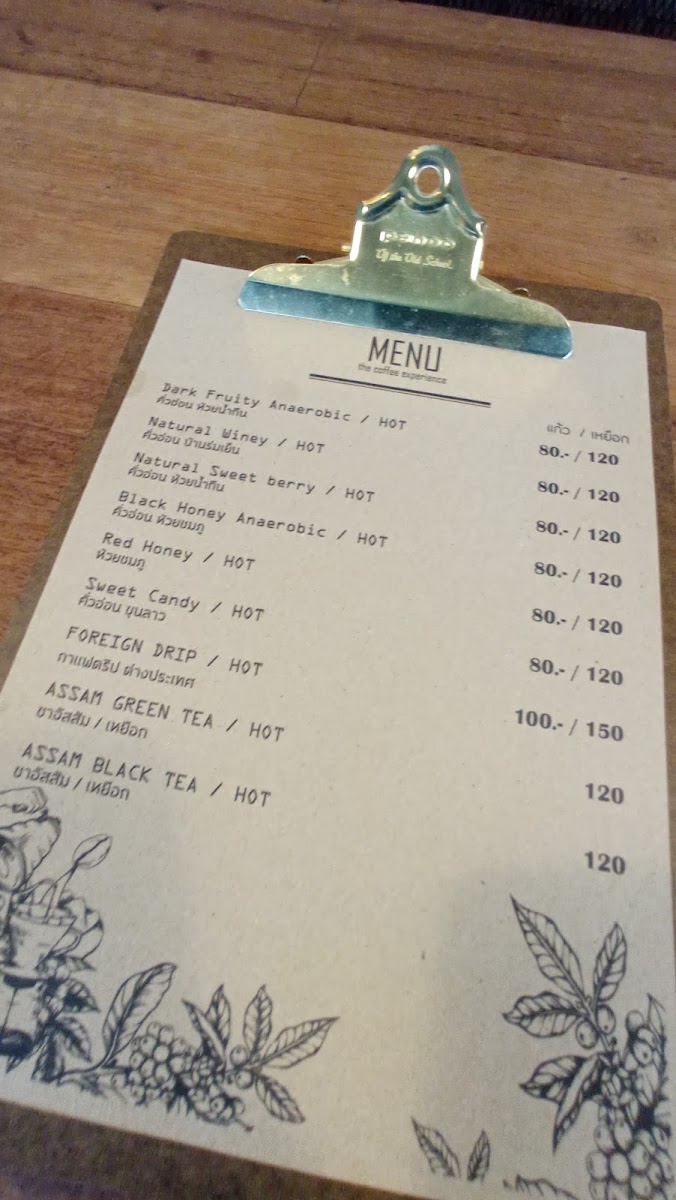 Of the Old School
MENU
the coffee experience
แก้ว / เหยือก
Dark Fruity Anaerobic / HOT
80.- / 120
คั่วอ่อน ห้วยน้ำกืน
Natural Winey / HOT
80.- / 120
คั่วอ่อน บ้านร่มเย็น
Natural Sweet berry / HOT
80.- / 120
คั่วอ่อน ห้วยน้ำกืน
Black Honey Anaerobic / HOT
80.- / 120
คั่วอ่อน ห้วยชมภู
Red Honey / HOT
80.- / 120
ห้วยชมภู
Sweet Candy / HOT
80.- / 120
คั่วอ่อน ขุนลาว
FOREIGN DRIP / HOT
100.- / 150
กาแฟดริป ต่างประเทศ
ASSAM GREEN TEA / HOT
120
ชาอัสสัม / เหยือก
ASSAM BLACK TEA / HOT
120
ชาอัสสัม / เหยือก